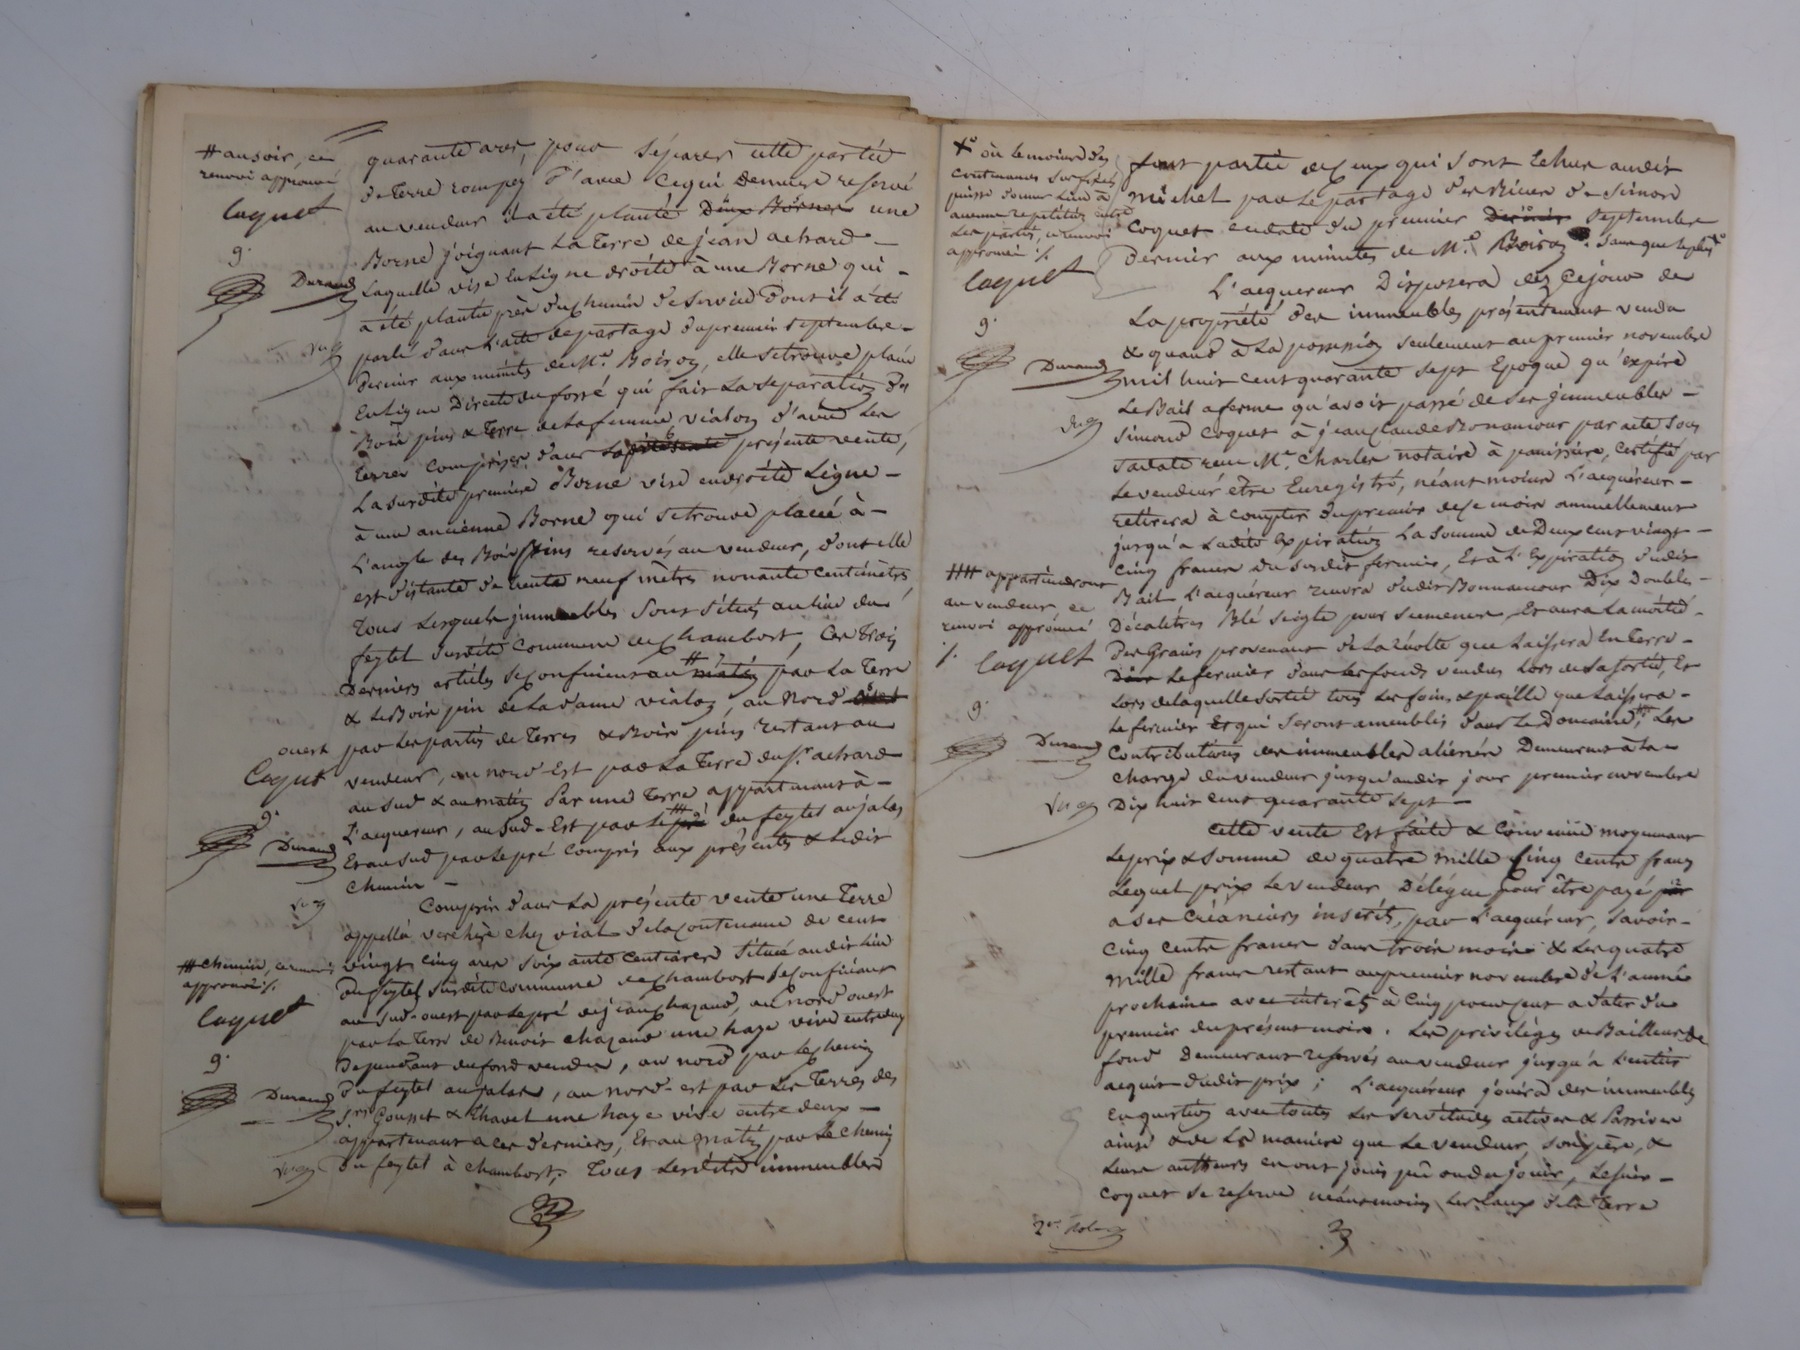 # au soir, ce
renvoi approuvé
Coquet
g.
Durand
quarante ares, pour séparer cette partie
de Terre rompey d'avec cequi demeure reservé
au vendeur il a été planté Deux Bornes une
Borne joignant La Terre de jean achard —
Laquelle vise En Ligne droite à une Borne qui —
a été plantée près du chemin de service dont il a été
parlé dans L'acte de partage du premier septembre —
dernier aux minutes de Me. Boiron, elle se trouve placée
En Ligne Directe du fossé qui fait La séparation des
Bois pins & Terre de La femme vialon d'avec Les
Terres comprises dans La présente vente,
La susdite première Borne vise en droite Ligne —
à une ancienne Borne qui se trouve placée à —
L'angle des Bois pins reservés au vendeur, dont elle
est distante de trente neuf mètres nonante centimètres
Tous Lesquels immeubles sont situés au Lieu du
feytel susdite commune de chambost, Ces trois
Derniers articles se confinent au # matin par La Terre
& Le Bois pin de La dame vialon, au Nord ouest
ouest
par Les parties de Terres & Bois pins restant au
Coquet
vendeur, au nord-Est par La Terre du Sr. achard
au Sud & au matin Par une Terre appartenant à —
g.
L'acquereur, au Sud-Est par Le # pré du feytel au jalas
Durand
Et au Sud par Le pré compris aux présentes & Ledit
chemin —
Compris dans La présente vente une Terre
appellée verchère chez vial de La contenance de cent
# chemin, ce renvoi
approuvé ./.
vingt cinq ares soixante centiares située au dit Lieu
du feytel susdite commune de chambost se confinant
Coquet
au Sud-ouest par Le pré de jean chazaud, au nord ouest
par La Terre de Benoit chazaud une haye vive entredeux
g.
Dependant du fond vendu, au nord par Le chemin
Durand
du feytel au jalas, au nord-est par Les Terres des
Srs Gousset & Thavel une haye vive entre deux —
appartenant a ces derniers, Et au matin par Le chemin
du feytel à chambost; Tous Lesdits immeubles
X° où Le moins des
contenances susdites
puisse donner Lieu à
aucune repetition entre
Les parties, ce renvoi
approuvé ./.
Coquet
g.
Durand
font partie de ceux qui sont Echus audit
michel par Le partage des Biens de Simond
Coquet Endate du premier Dernier septembre
Dernier aux minutes de Me. Boiron. sans que Le plus X°
L'acquereur Disposera dez Ce jour de
La propriété des immeubles présentement vendu
& quand à La possession seulement au premier novembre
mil huit cent quarante sept Epoque qu'expire
Le Bail a ferme qu'avoit passé de Ses immeubles —
Simond Coquet à jean Claude Bonamour par acte sous
sa date reçu Me. Charles notaire à panissière, Certifié par
Le vendeur être Enregistré, néant moins L'acquéreur —
retirera à compter du premier de ce mois annuellement
jusqu'a Ladite Expiration La somme de Deux cent vingt —
cinq francs du susdit fermier, Et à L'Expiration dudit
## appartiendront
au vendeur, ce
renvoi approuvé
./. Coquet
g.
Durand
Bail L'acquéreur rendra dudit Bonnamour Dix Doubles —
Décalitres Blé seigle pour semence, Et aura La moitié —
Des Grains provenant de La récolte que Laissera En Terre —
Dix Le fermier dans Les fonds vendus Lors de Sa sortie, Et
Lors de laquelle sortie tous Les foins & paille que Laissera —
Le fermier Et qui seront ameublis dans Le Domaine, ## Les
Contributions des immeubles aliénés Demeurent à La
charge du vendeur jusqu'audit jour premier novembre
Dix huit cent quarante sept —
Cette vente Est faite & Convenue moyennant
Le prix & somme de quatre mille Cinq Cents francs
Lequel prix Le vendeur Délégue pour être payé par
a ses Créanciers inscrits, par L'acquéreur, savoir —
Cinq Cents francs dans trois mois & Les quatre
mille francs restant au premier novembre de L'année
prochaine avec intérêts à Cinq pour cent a dater du
premier du présent mois. Les privilèges de Bailleur de
fond Demeurant reservés au vendeur jusqu'a L'entier
acquit dudit prix; L'acquéreur jouira des immeubles
En question avec toutes Les servitudes actives & Passives
ainsi & de La manière que Le vendeur, son père, &
Leurs autheurs en ont joui pû ou du jouir, Le sieur —
Coquet se reserve néanmoins Les Eaux de La Terre